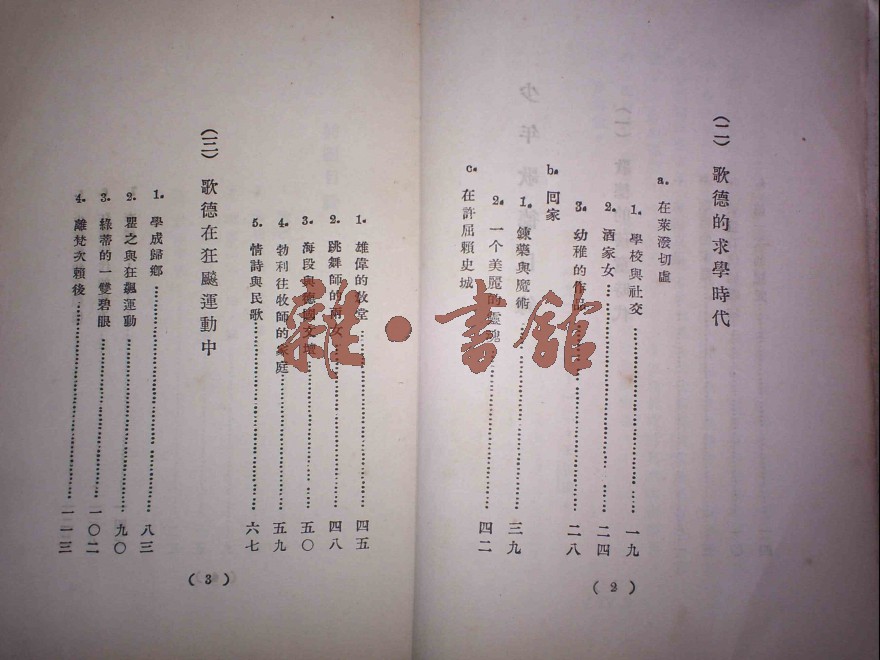 (二) 歌德的求學時代
a. 在萊潑切虛
1. 學校與社交……一九
2. 酒家女……二四
3. 幼稚的作品……二八
b. 回家
1. 鍊藥與魔術……三九
2. 一个美麗的靈魂……四二
c. 在許屈賴史城
(2)
1. 雄偉的敎堂……四五
2. 跳舞師的兩女……四八
3. 海段與德國文壇……五〇
4. 勃利往牧師的家庭……五九
5. 情詩與民歌……六七
(三) 歌德在狂飈運動中
1. 學成歸鄉……八三
2. 瞿之與狂飆運動……九〇
3. 綠蒂的一雙碧眼……一〇二
4. 離梵次賴後……一一三
(3)
雜·書館